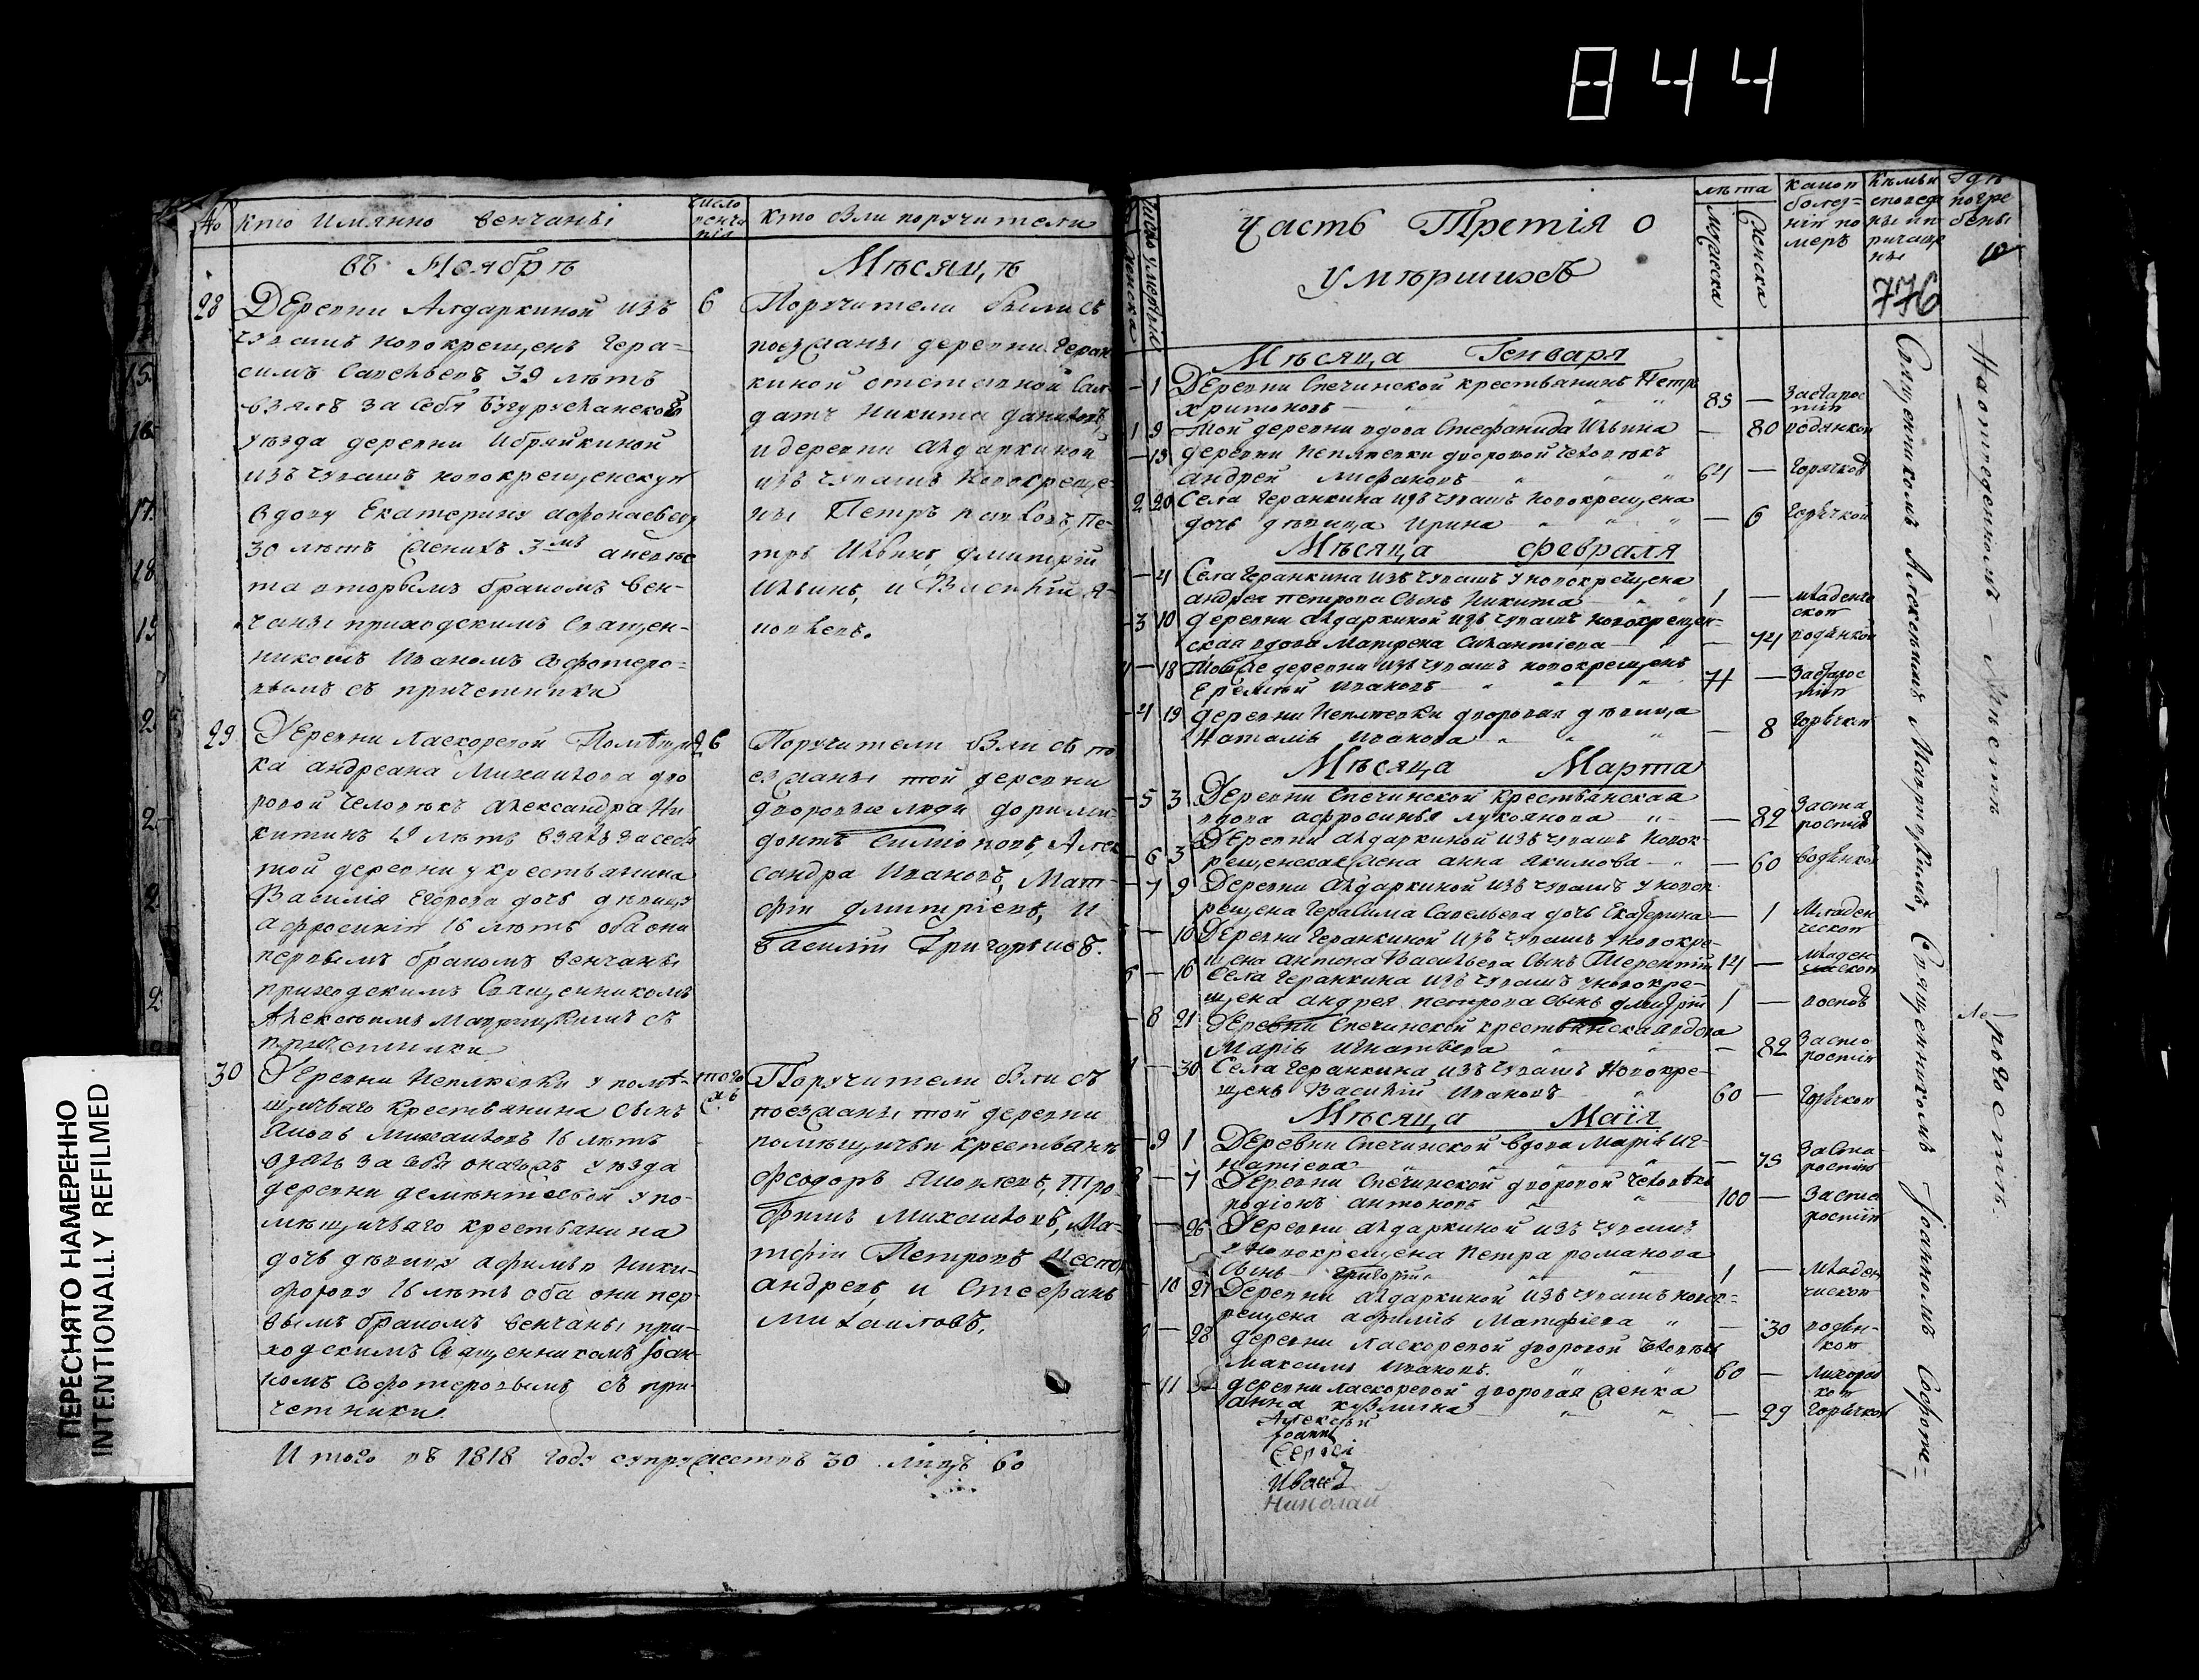 844
ПЕРЕСНЯТО НАМЕРЕННО
INTENTIONALLY REFILMED
№
кто Имянно венчаны
число
венча
нія
кто были поручители
въ Ноябрѣ
Мѣсяцѣ
28
Деревни Алдаркиной изъ
6
чувашъ новокрещенъ Гера=
симъ Савельевъ 39 лѣтъ
взялъ за себя Бугурусланскаго
уѣзда деревни Ибряйкиной
изъ чувашъ новокрещенскую
вдову Екатерину
30 лѣтъ женихъ 3мъ а невѣс
та вторымъ бракомъ вен-
чаны приходскимъ Священ-
никомъ Иваномъ Софотеро=
вымъ съ причетники
Поручители были съ
поезжаны деревни Геран
киной отставной Сал
датъ Никита Даниловъ
и деревни Алдаркиной
изъ чувашъ Новокреще-
ны Петръ Павловъ, Пе-
тръ Ильинъ, Димитрій
Ильинъ, и Василій Я-
ковлевъ.
29
Деревни Ласкоревой Помѣщи
26
ка Андреана Михаилова дво
ровой человѣкъ Александра Ни
китинъ 19 лѣтъ взялъ за себя
той деревни у крестьянина
Василія Егорова дочь дѣвицу
Афросинію 16 лѣтъ оба они
первымъ бракомъ венчаны
приходскимъ Священникомъ
Алексѣемъ Мавринскимъ съ
причетники
Поручители были съ по
езжаны той деревни
дворовые люди Дориме
донтъ Симіоновъ, Алек
сандра Ивановъ, Мат-
фій Димитріевъ, и
Василій Григорьевъ.
30
Деревни Неплюевки у помѣ-
того
щичьего крестьянина Сынъ
Яковъ Михаиловъ 16 лѣтъ
взялъ за себя онагожъ уѣзда
деревни у по-
мѣщичьего крестьянина
дочь дѣвицу Афимью Ники-
форову 16 лѣтъ оба они пер-
вымъ бракомъ венчаны при-
ходскимъ Священникомъ Іоан-
номъ Софотеровымъ съ при-
четники
Поручители были съ
поезжаны той деревни
помѣщичьи крестьяне
Феодоръ Яковлевъ, Тро-
фимъ Михаиловъ, Ма-
тфій Петровъ
Андреевъ, и Стефанъ
Михаиловъ.
И того въ 1818 году супружествъ 30 лицъ 60
Часть Третія о
умѣршихъ
лѣта
Мужеска
Женска
какою
болез=
нію по
меръ
Кѣмъ
исповед
ны и п
ричаще
ны
Гдѣ
погре
бены
776
Мѣсяца Генваря
1 Деревни Спечинской крестьянинъ Петръ
Харитоновъ 85 — За старос
тію
1 9 Той деревни вдова Стефанида Ильина — 80 водянкой
13 Деревни Неплюевки дворовой человѣкъ
Андрей 64 — Горячкою
2 20 Села Геранкина изъ чувашъ новокрещена
дочь дѣвица Ирина — 6 Горячкой
Мѣсяца Февраля
4 Села Геранкина изъ чувашъ у новокрещена
Андрея Петрова Сынъ Никита 1 — младенче
скою
3 10 Деревни Алдаркиной изъ чувашъ новокрещен-
ская вдова Матрена — 74 водянкой
18 Тойже деревни изъ чувашъ новокрещенъ
Еремѣй Ивановъ 71 — За старос
тію
4 19 Деревни Неплюевки дворовая дѣвица
Наталія Иванова — 8 Горячкою
Мѣсяца Марта
5 3 Деревни Спечинской Крестьянская
вдова Афросинья Лукоянова — 82 За ста
ростію
6 3 Деревни Алдаркиной изъ чувашъ Новок-
рещенская жена Анна Якимова — 60 водянкой
7 9 Деревни Алдаркиной изъ чувашъ у новок-
рещена Герасима Савельева дочь Екатерина — 1 Младен
ческою
10 Деревни Геранкиной изъ чувашъ у новокре-
щена Антона Васильева Сынъ Терентій — Младен
ческою
16 Села Геранкина изъ чувашъ у новокре-
щена Андрея Петрова Сынъ Димитрій 1 — воспою
8 21 Деревни Спечинской крестьянская вдова
Марія Игнатьева — 82 За ста
ростію
30 Села Геранкина изъ чувашъ Новокре-
щенъ Василій Ивановъ 60 — Горячкою
Мѣсяца Маія
9 1 Деревни Спечинской вдова Марья Иг-
натіева — 75 За ста
ростію
7 Деревни Спечинской дворовой человѣкъ
Родіонъ Антоновъ 100 — За ста
ростію
26 Деревни Алдаркиной изъ чувашъ
у новокрещена Петра Романова
Сынъ Григорій 1 — Младен
ческою
10 27 Деревни Алдаркиной изъ чувашъ новок=
рещена Афимія Матфіева — 30 водян-
кою
28 Деревни Ласкоревой дворовой человѣкъ
Максимъ Ивановъ. 60 — Лихорад
кою
11 Деревни Ласкоревой дворовая женка
Анна Кузмина — 29 Горячкою
Алексѣй
Іоаннъ
Сергѣй
Иванъ
Николай
Священникомъ Алексѣемъ Мавринскимъ, Священникомъ Іоанномъ Софоте=
На отведенномъ Мѣстѣ